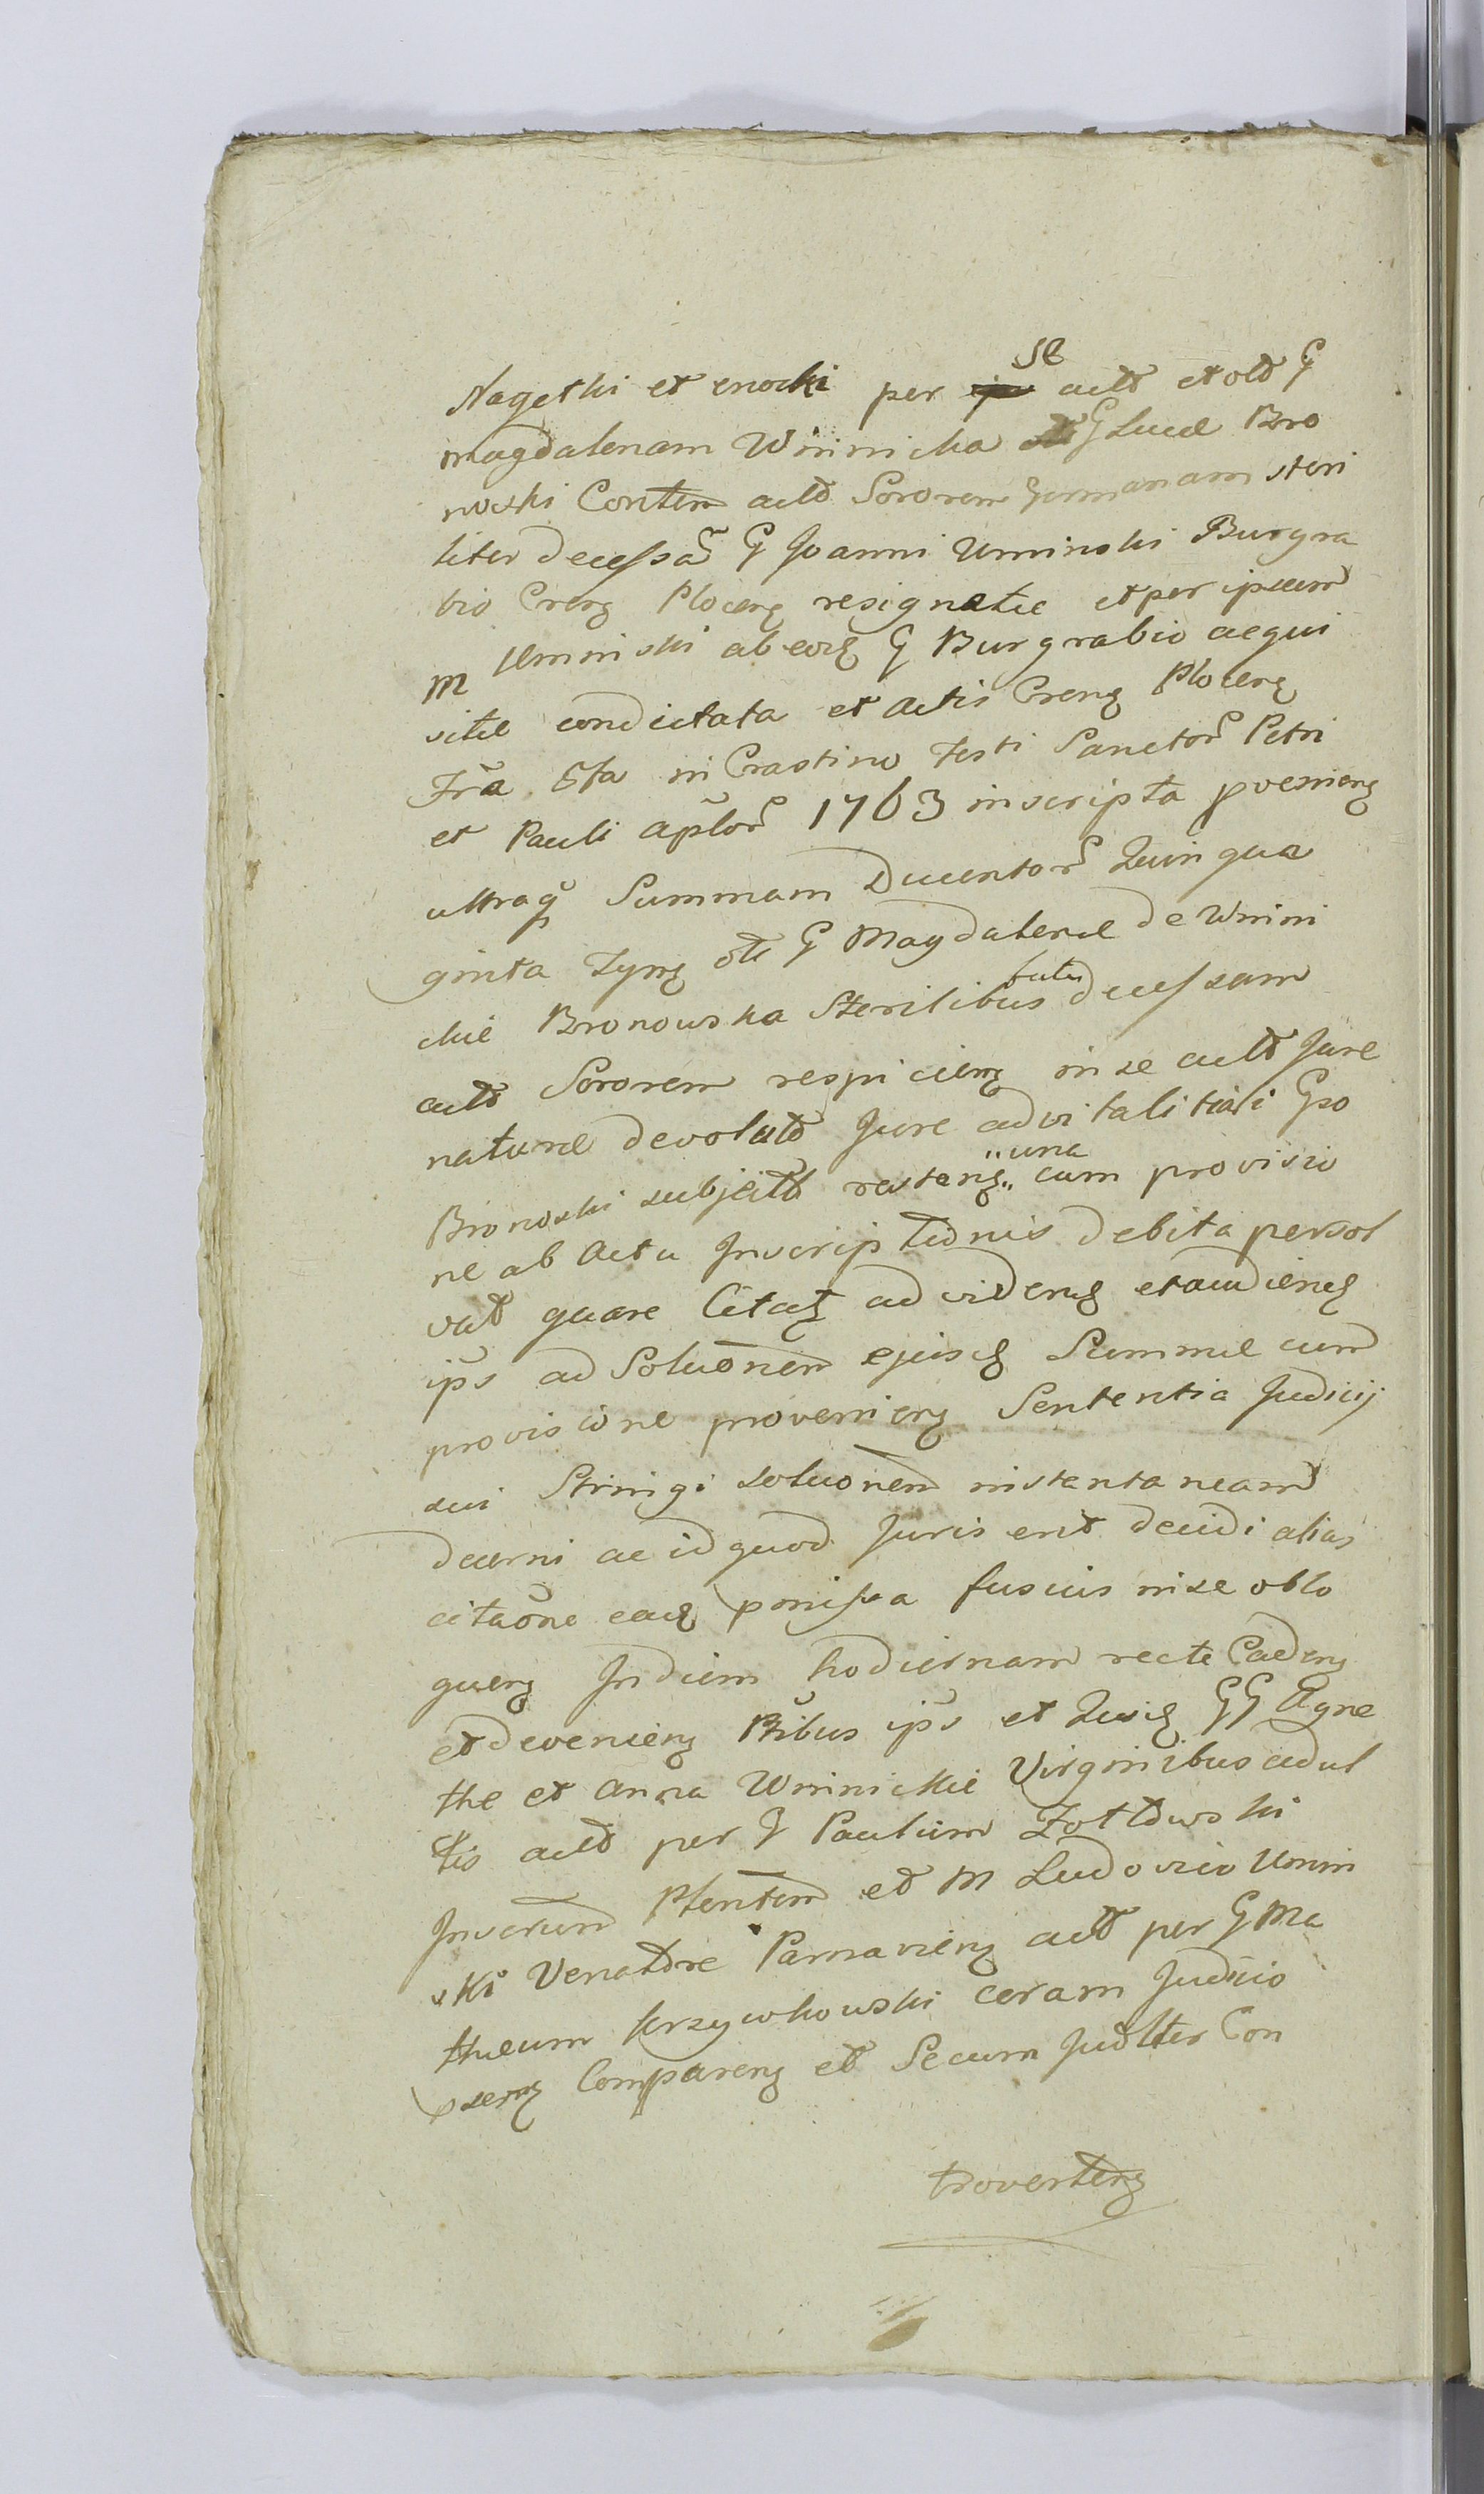 Nagethi et enocki per se actt et olt G
magdalenam Winnicka G Lucæ Bro
noski Contem actt Sororem germanam steri
liter decessã G Joanni Uminski Burgra
bio Crens Plocens resignatæ et per ipsum
M Uminski ab eods G Burgrabio acqui
sitæ condictata et actis Crens Plocens
Frã 6ta in Crastino Festi Sanctor Petri
et Pauli aplor 1763 inscripta pveniens
utraq Summam Ducentor Quinqua
ginta Tyms olt G Magdalenæ de Winni
ckie Bronowska Sterilibus fatis decessam
actt Sororem respiciens in se actt Jure
naturæ devolutt Jure advitalitiali Gso
Bronoski subjectt restans „una cum provisio
ne ab actu Inscriptionis debita persol
vat quare Citatt ad videns et audiens
ips ad Soluonem ejusd Summæ cum
provisione proveniens Sententia Judicij
sui Stringi soluonem instantaneam
decerni ac id quod Juris erit decidi alias
citaõne eads pmissa fusius in se oblo
quens In diem hodiernam recte Cadens
et deveniens Ptibus ips et Quis GG Agne
the et anna Winnickie Virginibus adul
tis actt per G Paulum Zottowski
Juratum Plentem et M Ludovico Umin
ski Venatore Parnaviens actt per G Ma
theum Krzywkowski coram Judicio
psens Comparens et Secum Judlter Con
trovertens